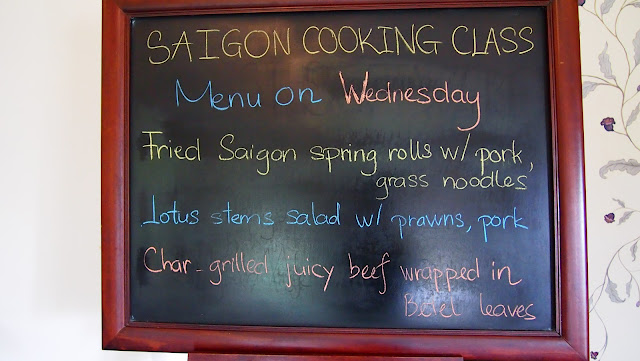 SAIGON COOKING CLASS
Menu on Wednesday
Fried Saigon spring rolls w/ pork,
grass noodles
Lotus stems salad w/ prawns, pork
Char-grilled juicy beef wrapped in
Betel leaves